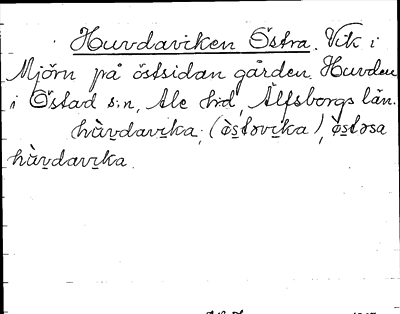 Huvdaviken Östra. Vik i
Mjörn på östsidan gården Huvden
i Östad s:n, Ale hd, Älfsborgs län.
hùvdavika; (östovika), östosa
hùvdavika.